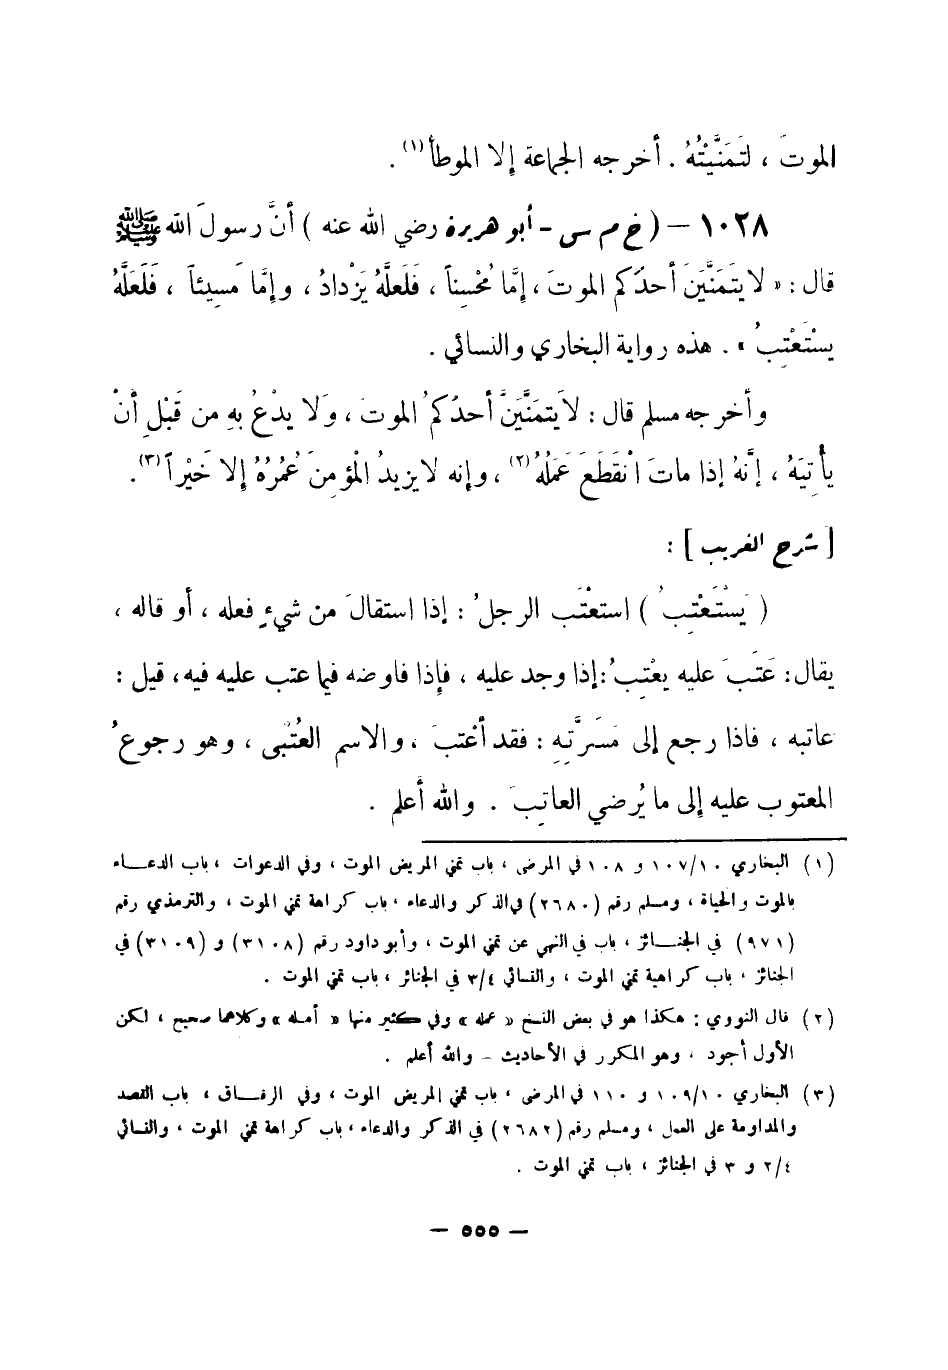 الموتَ ، لتَمَنَّيْتُهُ . أخرجه الجماعة إلا الموطأ(١) .
١٠٢٨ – ( خ م س - أبو هريرة رضي الله عنه ) أنَّ رسولَ الله ﷺ
قال : « لا يتَمَنَّيَنَ أحدُكم الموتَ ، إمَّا مُحْسِناً ، فَلَعلَّهُ يَزْدادُ ، وإمَّا مَسِيئاً ، فَلَعَلَّهُ
يسْتَعْتِبُ » . هذه رواية البخاري والنسائي .
وأخرجه مسلم قال : لا يَتمَنَّيَنَّ أحدُكمُ الموتَ ، وَلا يدْعُ بهِ من قَبْلِ أنْ
يأْتِيَهُ ، إنَّهُ إذا ماتَ انْقَطَعَ عَمَلُهُ(٢) ، وإنه لا يزيدُ الْمؤمِنَ عُمُرُهُ إلا خَيْراً(٣) .
[ شرح الغريب ] :
( يَسْتَعْتِبُ ) استعْتَب الرجلُ : إذا استقالَ من شيءٍ فعله ، أو قاله ،
يقال : عَتَبَ عليه يعْتِبُ : إذا وجد عليه ، فإذا فاوضه فيما عتب عليه فيه ، قيل :
عاتبه ، فاذا رجع إلى مَسَرَّتِهِ : فقد أعْتبَ ، والاسم العُتْبى ، وهو رجوعُ
المعتوب عليه إلى ما يُرضي العاتِبَ . والله أعلم .
(١) البخاري ١٠٧/١٠ و ١٠٨ في المرضى ، باب تمني المريض الموت ، وفي الدعوات ، باب الدعـــاء
بالموت والحياة ، ومسلم رقم (٢٦٨٠) في الذكر والدعاء ، باب كراهة تمني الموت ، والترمذي رقم
(٩٧١) في الجنـــائز ، باب في النهي عن تمني الموت ، وأبو داود رقم (٣١٠٨) و (٣١٠٩) في
الجنائز ، باب كراهية تمني الموت ، والنسائي ٣/٤ في الجنائز ، باب تمني الموت .
(٢) قال النووي : هكذا هو في بعض النسخ « عمله » وفي كثير منها « أمله » وكلاهما صحيح ، لكن
الأول أجود ، وهو المكرر في الأحاديث – والله أعلم .
(٣) البخاري ١٠٩/١٠ و ١١٠ في المرضى ، باب تمني المريض الموت ، وفي الرقـــاق ، باب القصد
والمداومة على العمل ، ومسلم رقم (٢٦٨٢) في الذكر والدعاء ، باب كراهة تمني الموت ، والنسائي
٢/٤ و ٣ في الجنائز ، باب تمني الموت .
– ٥٥٥ –